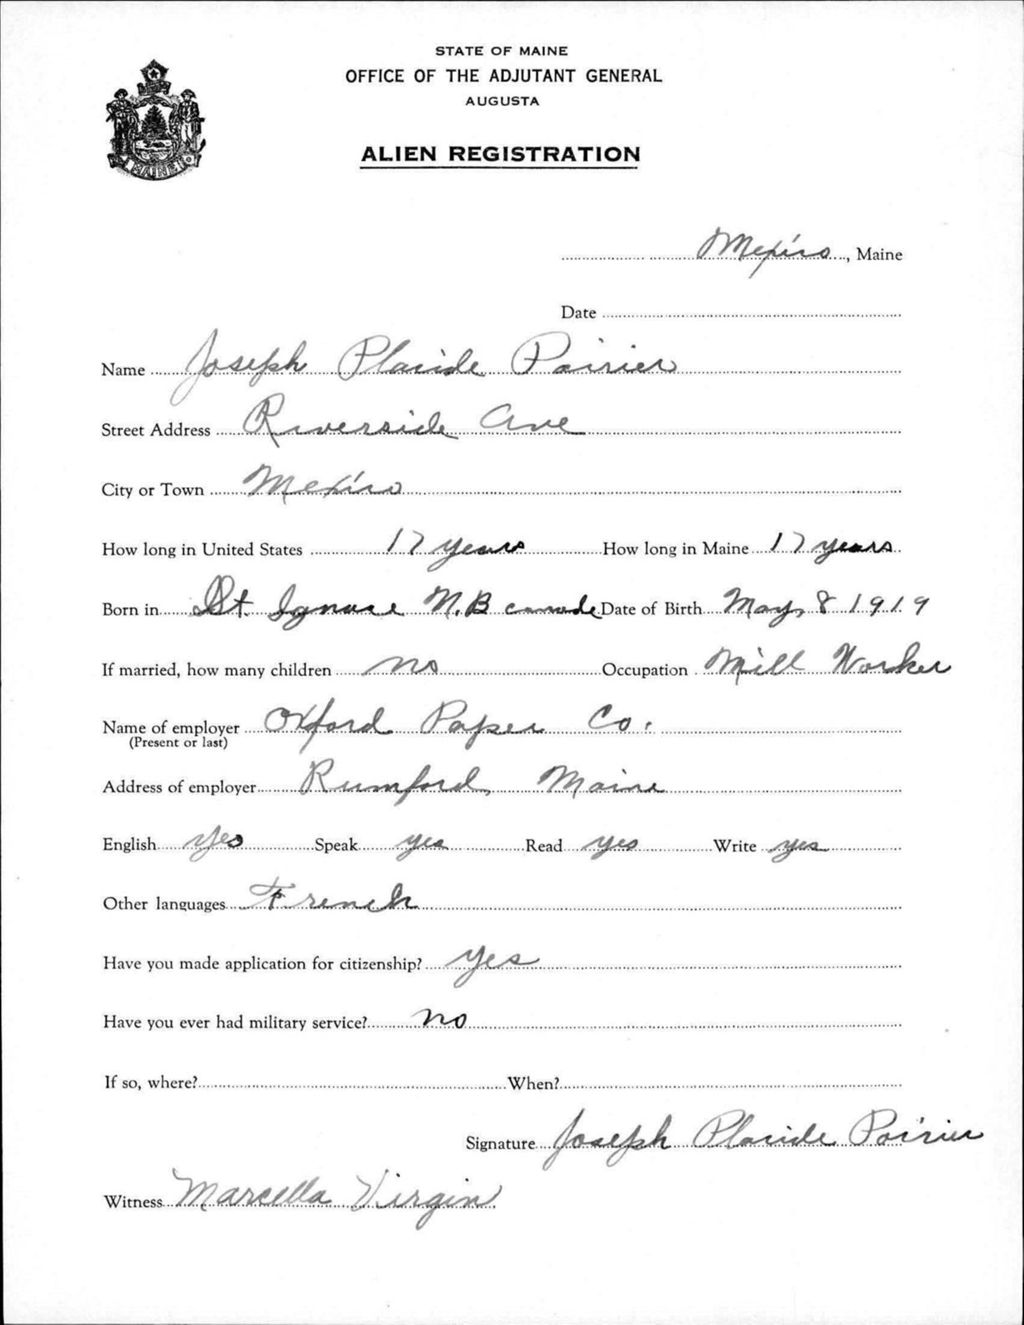 STATE OF MAINE
OFFICE OF THE ADJUTANT GENERAL
AUGUSTA
ALIEN REGISTRATION
MAINE
Mexico, Maine
Date
Name Joseph Placide Poirier
Street Address Riverside Ave
City or Town Mexico
How long in United States 17 years How long in Maine 17 years
Born in St. Ignace N.B canada Date of Birth May, 8 1919
If married, how many children no Occupation Mill Worker
Name of employer Oxford Paper Co.
(Present or last)
Address of employer Rumford, Maine
English yes Speak yes Read yes Write yes
Other languages French
Have you made application for citizenship? yes
Have you ever had military service? no
If so, where? When?
Signature Joseph Placide Poirier
Witness Marcella Virgin